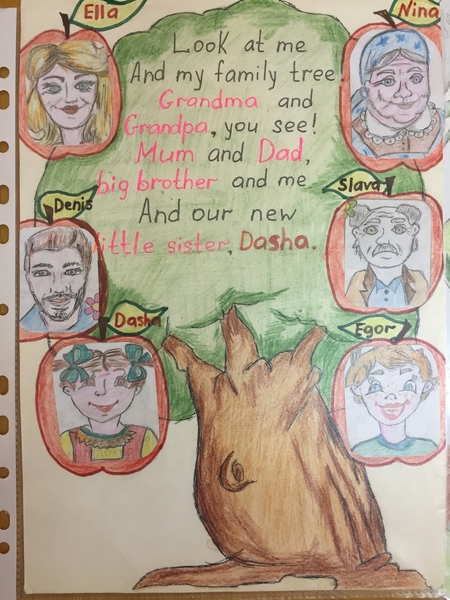 Ella
Nina
Look at me
And my family tree!
Grandma and
Grandpa, you see!
Mum and Dad,
big brother and me
And our new
little sister, Dasha.
Denis
Slava
Dasha
Egor